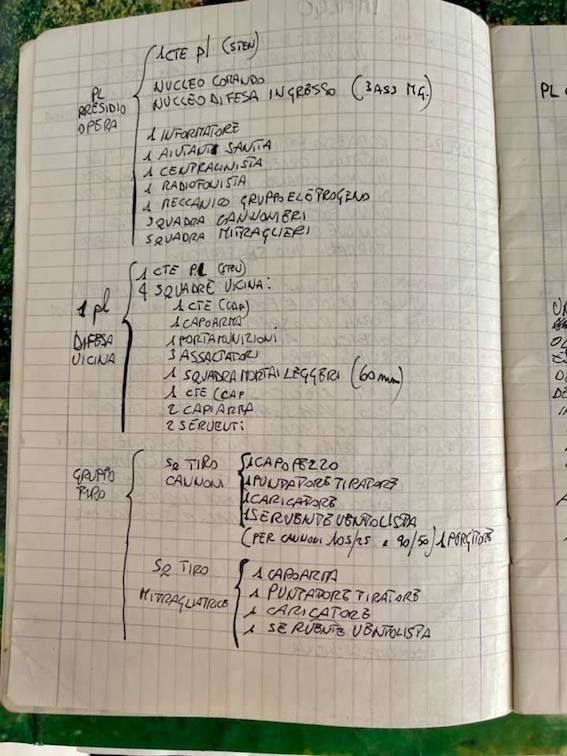 PL PRESIDIO OPERA
1 CTE pl (STEN)
NUCLEO COMANDO
NUCLEO DIFESA INGRESSO (3 ASS MG.)
1 INFORMATORE
1 AIUTANTE SANITA
1 CENTRALINISTA
1 RADIOFONISTA
1 MECCANICO GRUPPO ELETROGENO
SQUADRA CANNONIERI
SQUADRA MITRAGLIERI
1 pl DIFESA VICINA
1 CTE PL
4 SQUADRE VICINA:
1 CTE (CAP)
1 CAPOARMA
1 PORTAMUNIZIONI
3 ASSALTATORI
1 SQUADRA MORTAI LEGGERI (60mm)
1 CTE (CAP
2 CAPIARMA
2 SERVENTI
GRUPPO TIRO
SQ TIRO CANNONI
1 CAPOPEZZO
1 PUNTATORE TIRATORE
1 CARICATORE
1 SERVENTE VENTOLISTA
(PER CANNONI 105/25 e 90/50) 1 PORGITORE
SQ TIRO MITRAGLIATRICE
1 CAPOARMA
1 PUNTATORE TIRATORE
1 CARICATORE
1 SERVENTE VENTOLISTA
PL